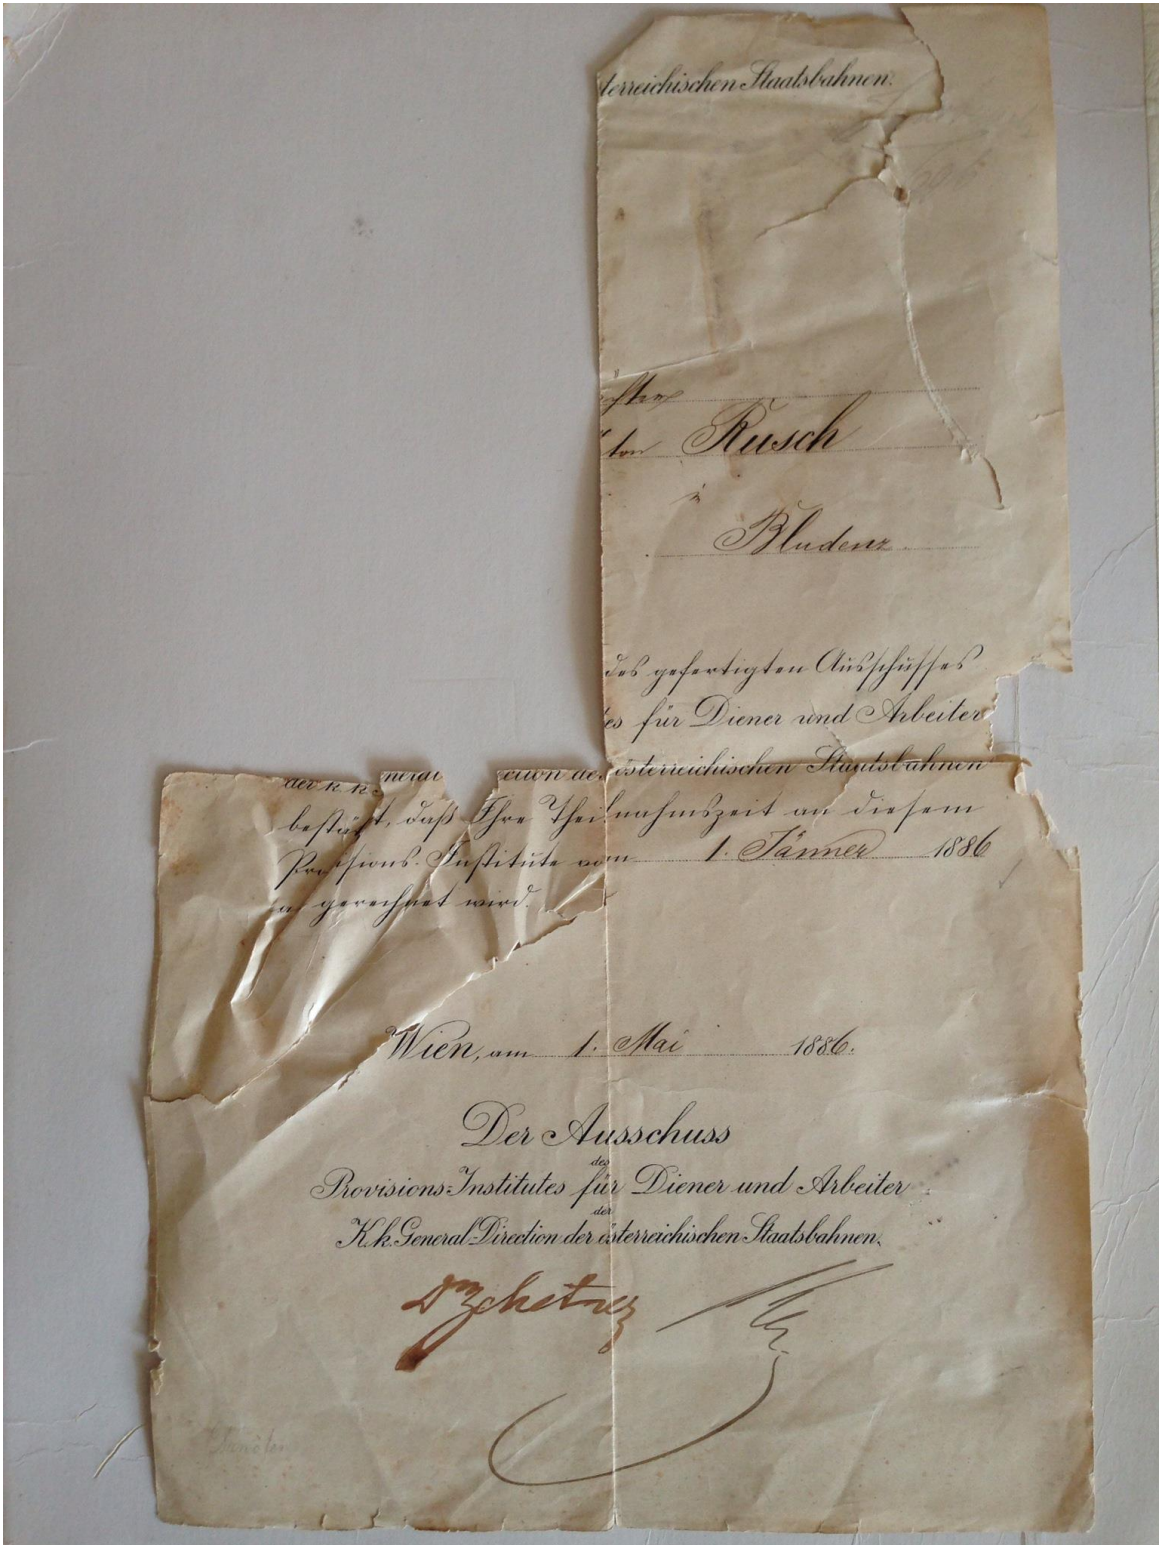 terreichischen Staatsbahnen.
ton Rusch
in
Bludenz.
des gefertigten Ausschusses
es für Diener und Arbeiter
der k. k. österreichischen Staatsbahnen
bestätigt, daß Ihre Theilnahmszeit an diesem
Provisions-Institute vom 1. Jänner 1886
an gerechnet wird.
Wien, am 1. Mai 1886.
Der Ausschuss
des
Provisions-Institutes für Diener und Arbeiter
der
K.k. General-Direction der österreichischen Staatsbahnen.